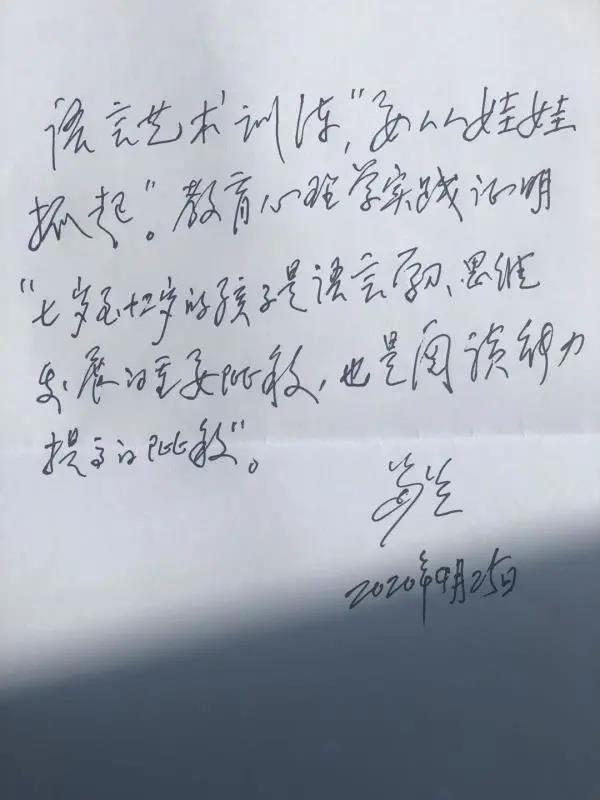 语言艺术训练，"要从娃娃
抓起"。教育心理学实践证明
"七岁至十二岁的孩子是语言学习、思维
发展的重要阶段，也是阅读能力
提高的阶段"。
2020年9月25日